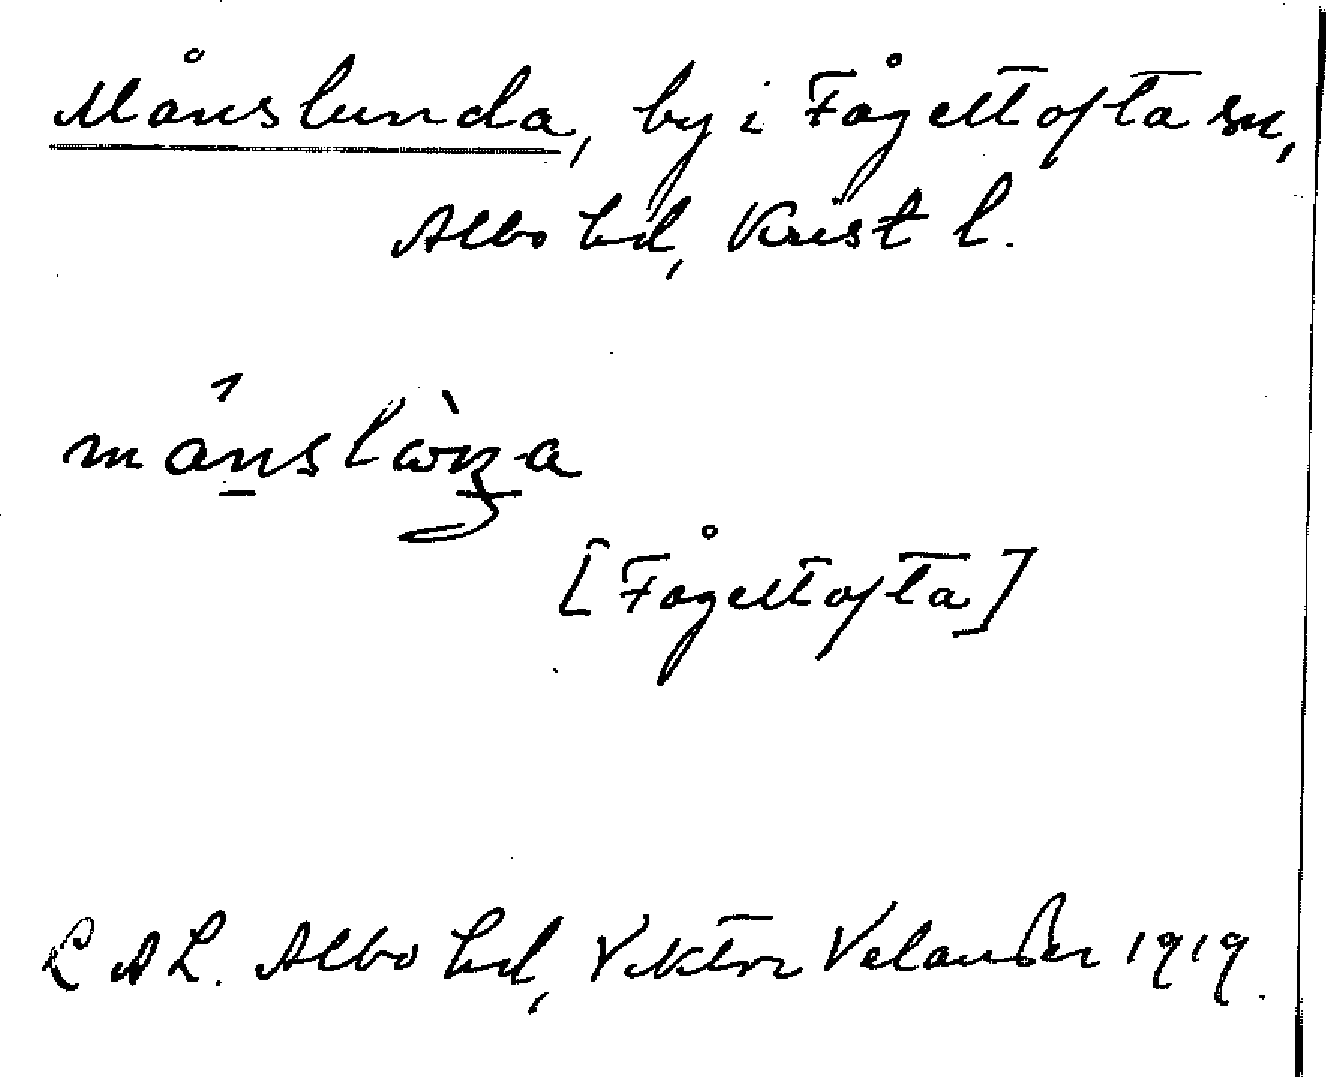 Månslunda, by i Fågeltofta sn,
Albo hd, Krist l.
[Fågeltofta]
LAL. Albo hd, Viktor Velander 1919.